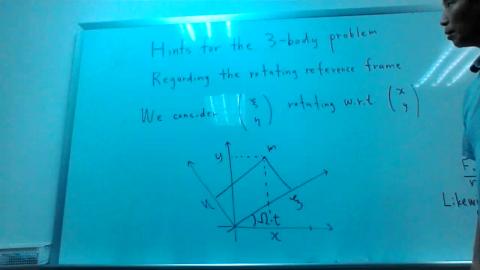 Hints for the 3-body problem
Regarding the rotating reference frame
We consider (ξ η) rotating w.r.t. (x y)
y
m
η
ξ
Ω·t
x
F
r
Likew